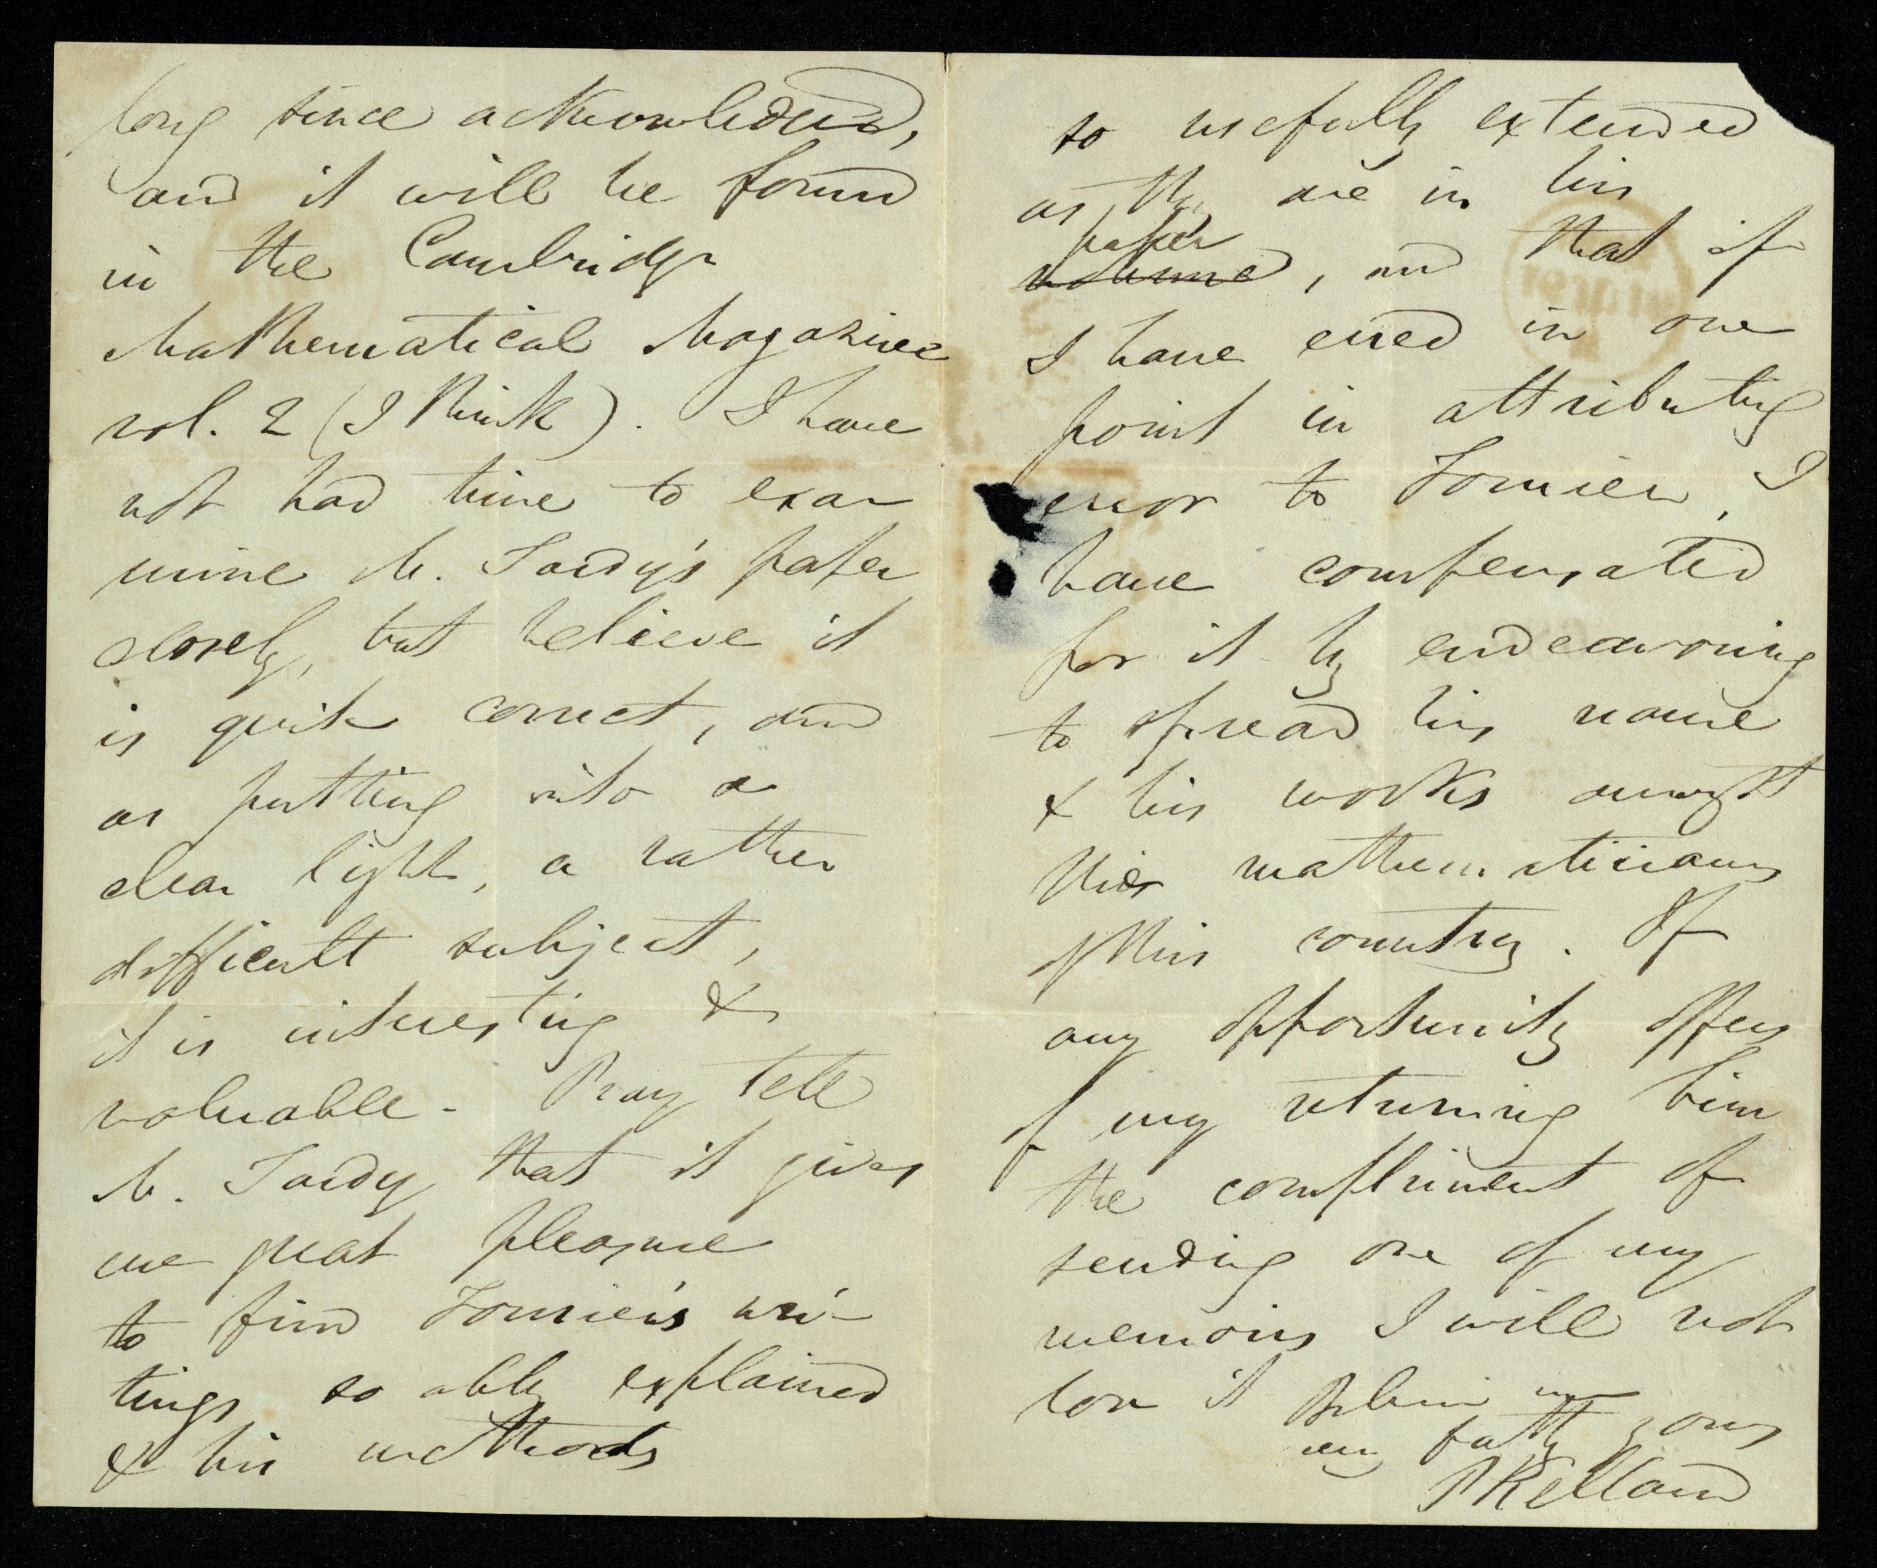 long since acknowledged,
and it will be found
in the Cambridge
Mathematical Magazine
vol. 2 (I think). I have
not had time to exa
mine M. Tardy's paper
closely, but believe it
is quite correct, and
as putting into a
clear light, a rather
difficult subject,
it is interesting &
valuable - Pray tell
M. Tardy that it gives
me great pleasure
to find Fourier's wri-
tings so ably explained
& his methods
so usefully extended
as they are in his
paper
volume, and that if
I have erred in one
point in attributing
error to Fourier, I
have compensated
for it by endeavouring
to spread his name
& his works amongst
the mathematicians
of this country. If
any opportunity offers
of my returning him
the compliment of
sending one of my
memoirs I will not
lose it Believe me
very faithy yours
P Kelland